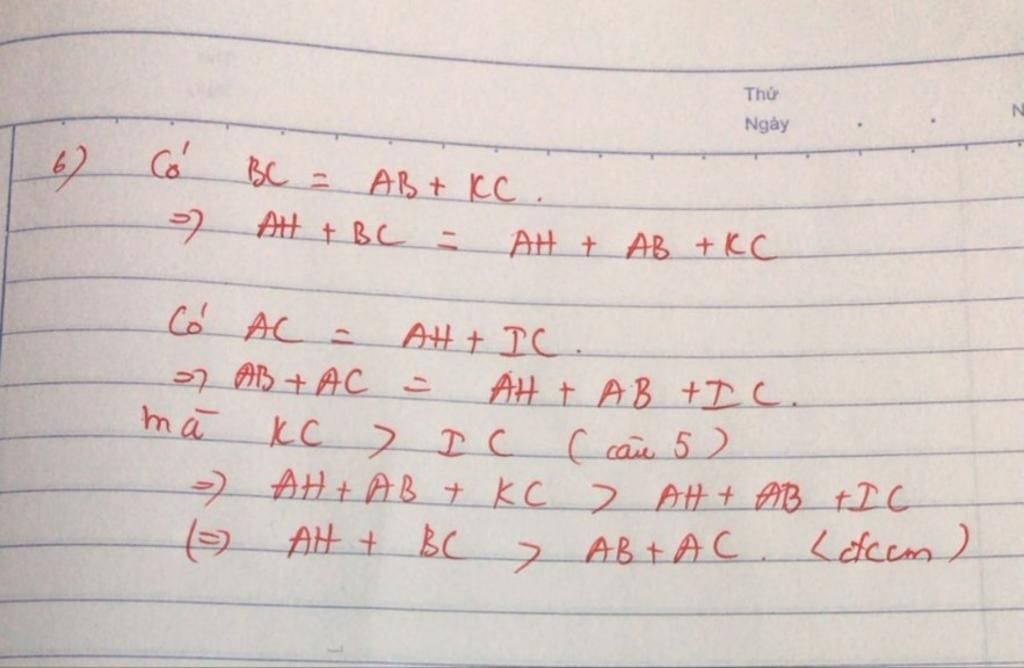 Thứ
Ngày
N
6) Có BC = AB + KC.
=> AH + BC = AH + AB + KC
Có AC = AH + IC.
=> AB + AC = AH + AB + IC.
mà KC > IC (câu 5)
=> AH + AB + KC > AH + AB + IC
(=> AH + BC > AB + AC. (đccm)